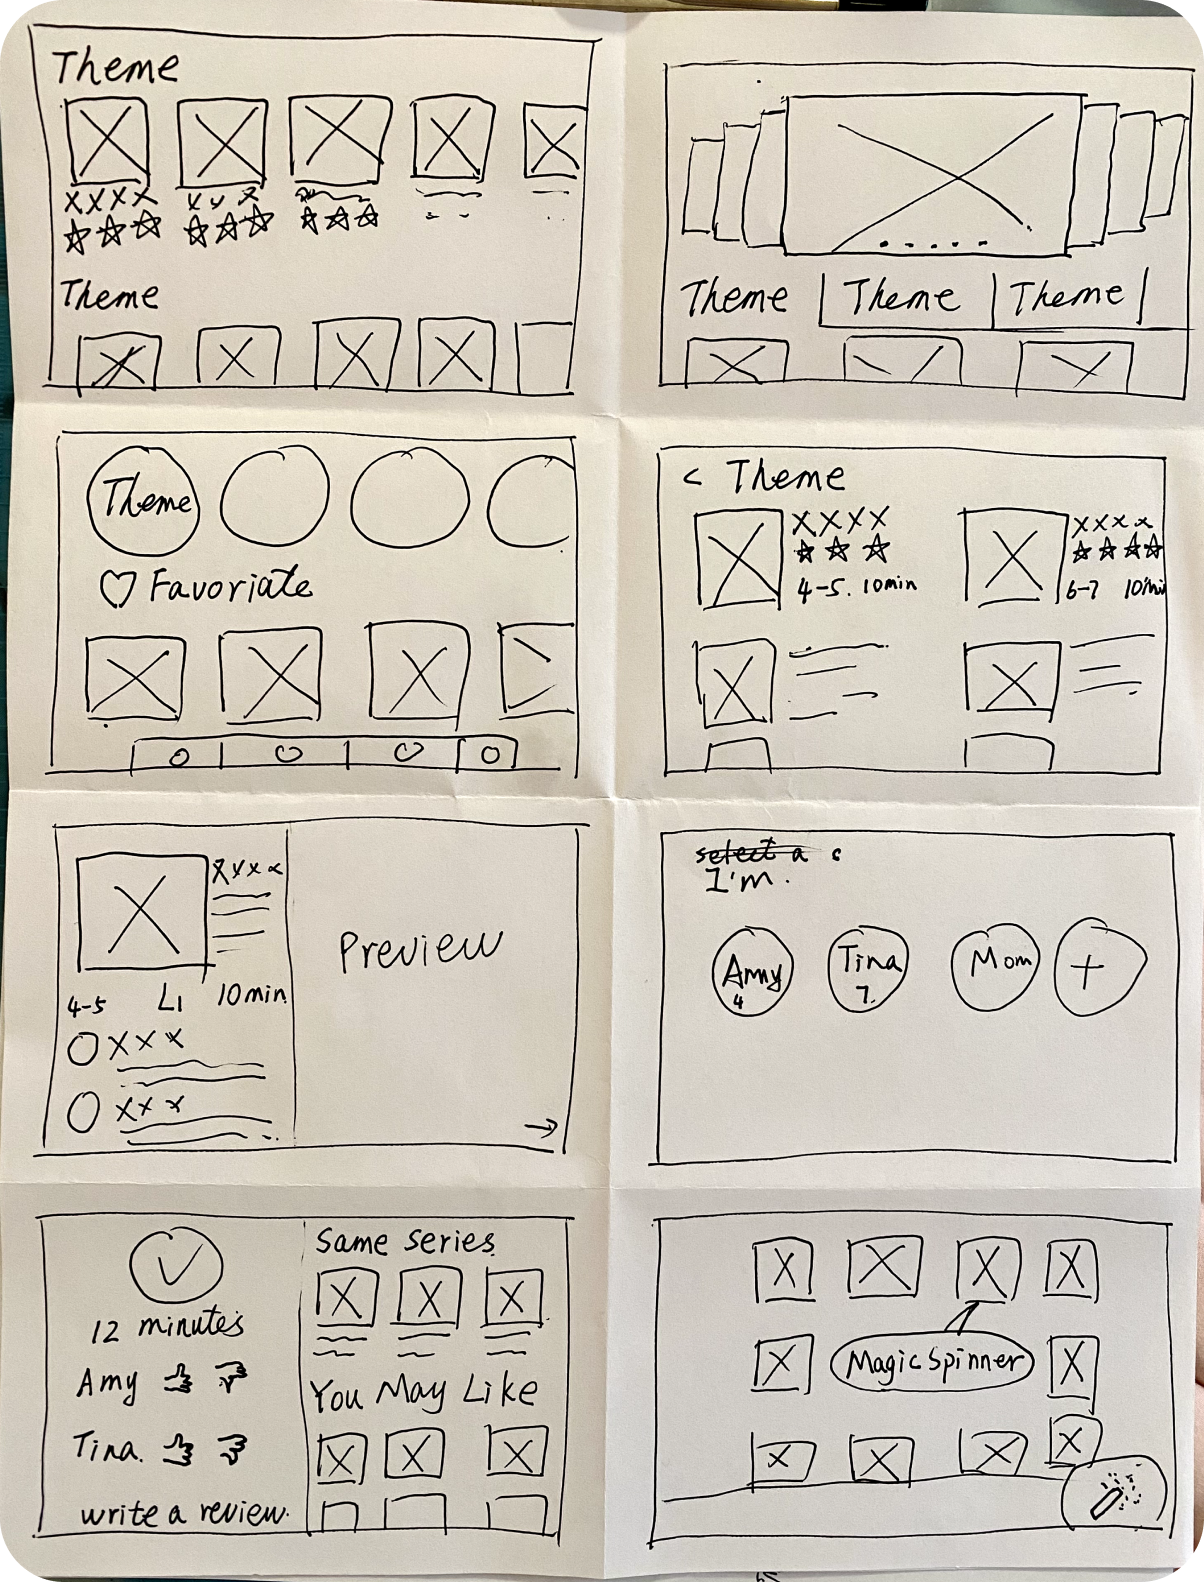 Theme
XXXX
XXX
Theme
Theme
Theme
Theme
Theme
Favoriate
< Theme
XXXX
4-5. 10min
XXXX
6-7 10min
XXXX
4-5 L1 10min
XXX
XXX
Preview
select a c
I'm.
Amy
4
Tina
7.
Mom
+
12 minutes
Amy
Tina.
write a review.
Same series
You May Like
Magic Spinner